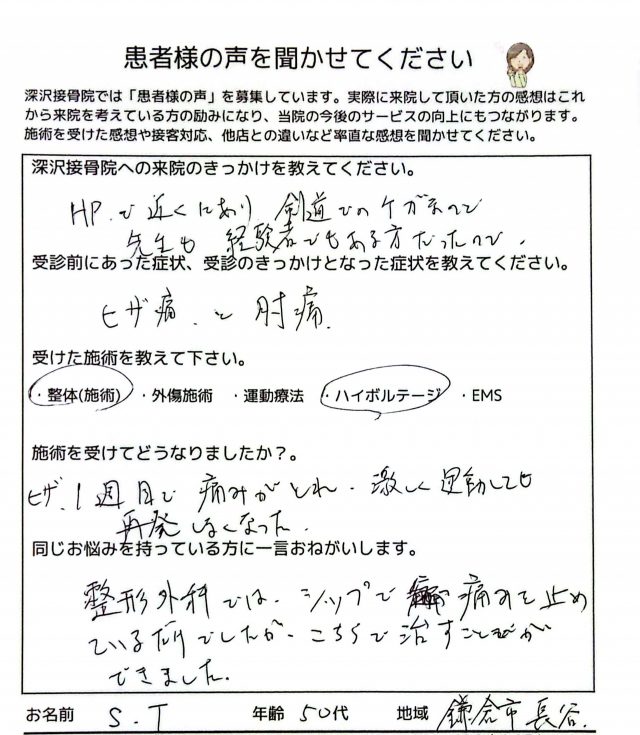 患者様の声を聞かせてください
深沢接骨院では「患者様の声」を募集しています。実際に来院して頂いた方の感想はこれ
から来院を考えている方の励みになり、当院の今後のサービスの向上にもつながります。
施術を受けた感想や接客対応、他店との違いなど率直な感想を聞かせてください。
深沢接骨院への来院のきっかけを教えてください。
HP.で近くにあり 剣道でのケガなので
先生も経験者でもある方だったので.
受診前にあった症状、受診のきっかけとなった症状を教えてください。
ヒザ痛.と肘痛.
受けた施術を教えて下さい。
・整体(施術) ・外傷施術 ・運動療法 ・ハイボルテージ ・EMS
施術を受けてどうなりましたか？。
ヒザ.1週目で痛みがとれ.激しく運動しても
再発しなくなった.
同じお悩みを持っている方に一言おねがいします。
整形外科では、シップで痛みを止め
ているだけでしたが、こちらで治すことが
できました.
お名前 S.T 年齢 50代 地域 鎌倉市長谷.